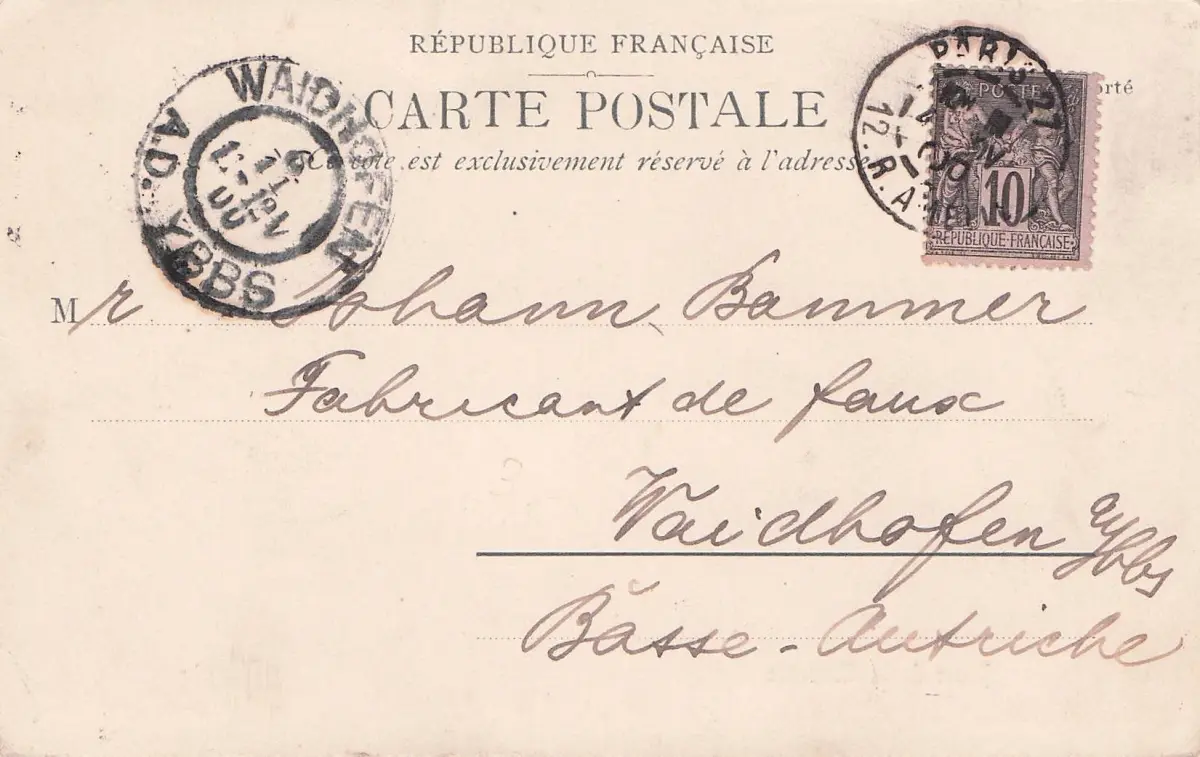 RÉPUBLIQUE FRANÇAISE
CARTE POSTALE
Ce côté est exclusivement réservé à l'adresse
WAIDHOFEN
A.D. YBBS
PARIS
12. R. A
POSTE
10
REPUBLIQUE-FRANÇAISE
Mr Johann Bammer
Fabricant de faux
Waidhofen a/Ybbs
Basse-Autriche